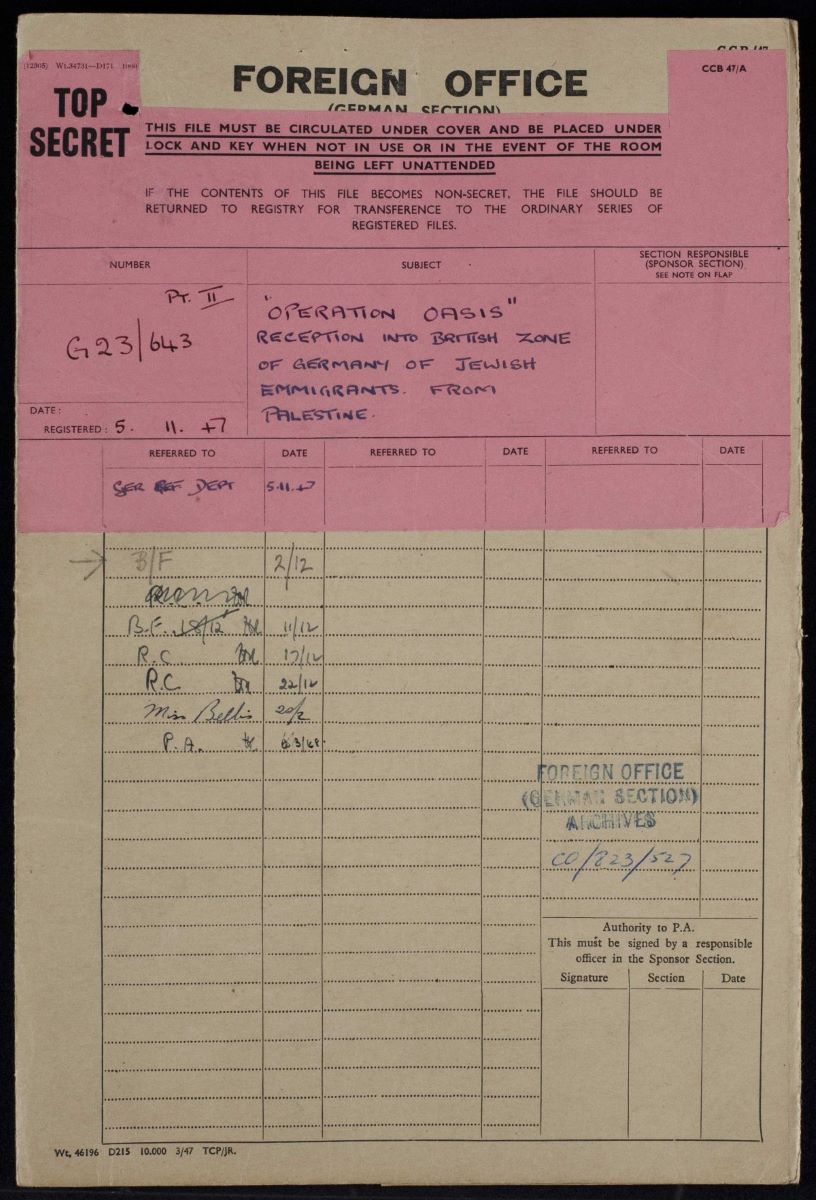 (12305) Wt.34731—D171
CCB 47/A
FOREIGN OFFICE
(GERMAN SECTION)
TOP
SECRET
THIS FILE MUST BE CIRCULATED UNDER COVER AND BE PLACED UNDER
LOCK AND KEY WHEN NOT IN USE OR IN THE EVENT OF THE ROOM
BEING LEFT UNATTENDED
IF THE CONTENTS OF THIS FILE BECOMES NON-SECRET, THE FILE SHOULD BE
RETURNED TO REGISTRY FOR TRANSFERENCE TO THE ORDINARY SERIES OF
REGISTERED FILES.
NUMBER
SUBJECT
SECTION RESPONSIBLE
(SPONSOR SECTION)
SEE NOTE ON FLAP
PT. II
G23/643
"OPERATION OASIS"
RECEPTION INTO BRITISH ZONE
OF GERMANY OF JEWISH
EMMIGRANTS. FROM
PALESTINE.
DATE:
REGISTERED: 5. 11. 47
REFERRED TO DATE REFERRED TO DATE REFERRED TO DATE
GER REF DEPT 5.11.47
B/F 2/12
B.F. 18/12 11/12
R.C. 17/12
R.C. 22/12
Miss Bellis 20/2
P.A. 3/48.
FOREIGN OFFICE
(GERMAN SECTION)
ARCHIVES
CO/823/527
Authority to P.A.
This must be signed by a responsible
officer in the Sponsor Section.
Signature Section Date
Wt. 46196 D215 10,000 3/47 TCP/JR.